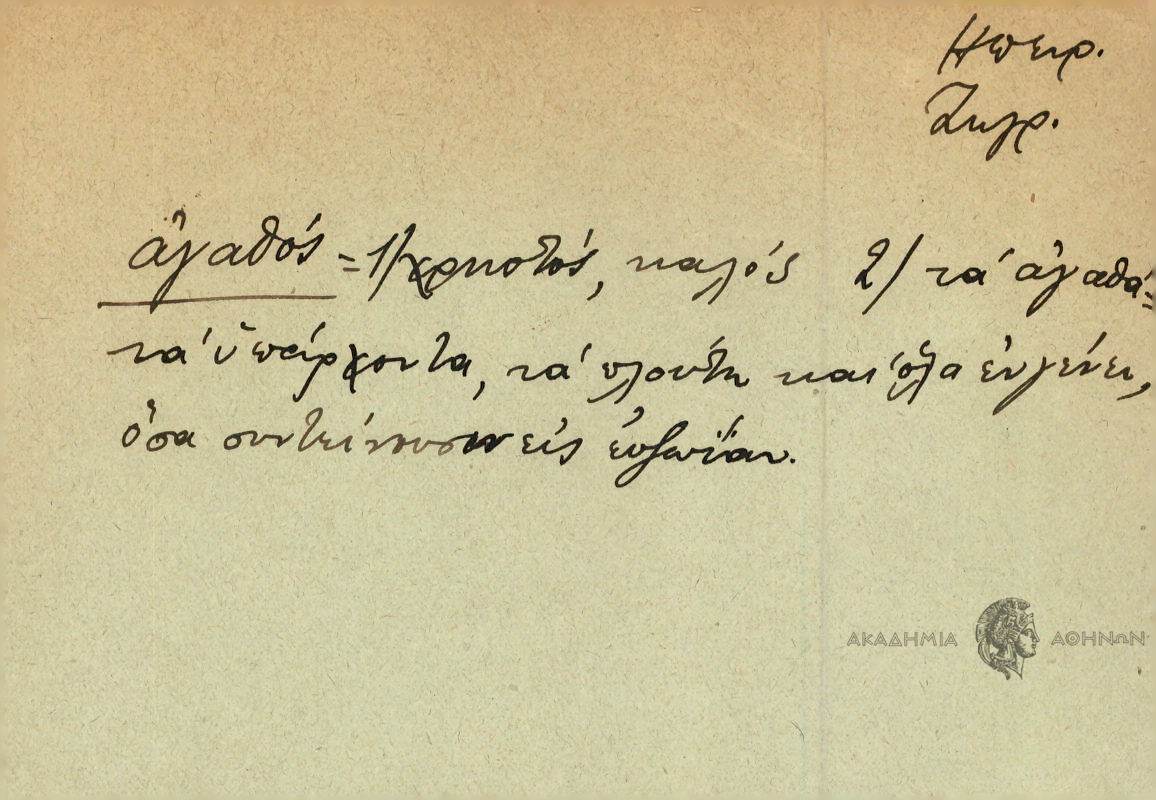 Ηπειρ.
Ζαγρ.
ἀγαθός = 1/ χρηστός, καλός 2/ τά ἀγαθά =
τά ὑπάρχοντα, τά πλούτη και ὅλα ἐν γένει,
ὅσα συντείνουσιν εἰς εὐζωΐαν.
ΑΚΑΔΗΜΙΑ ΑΘΗΝΩΝ